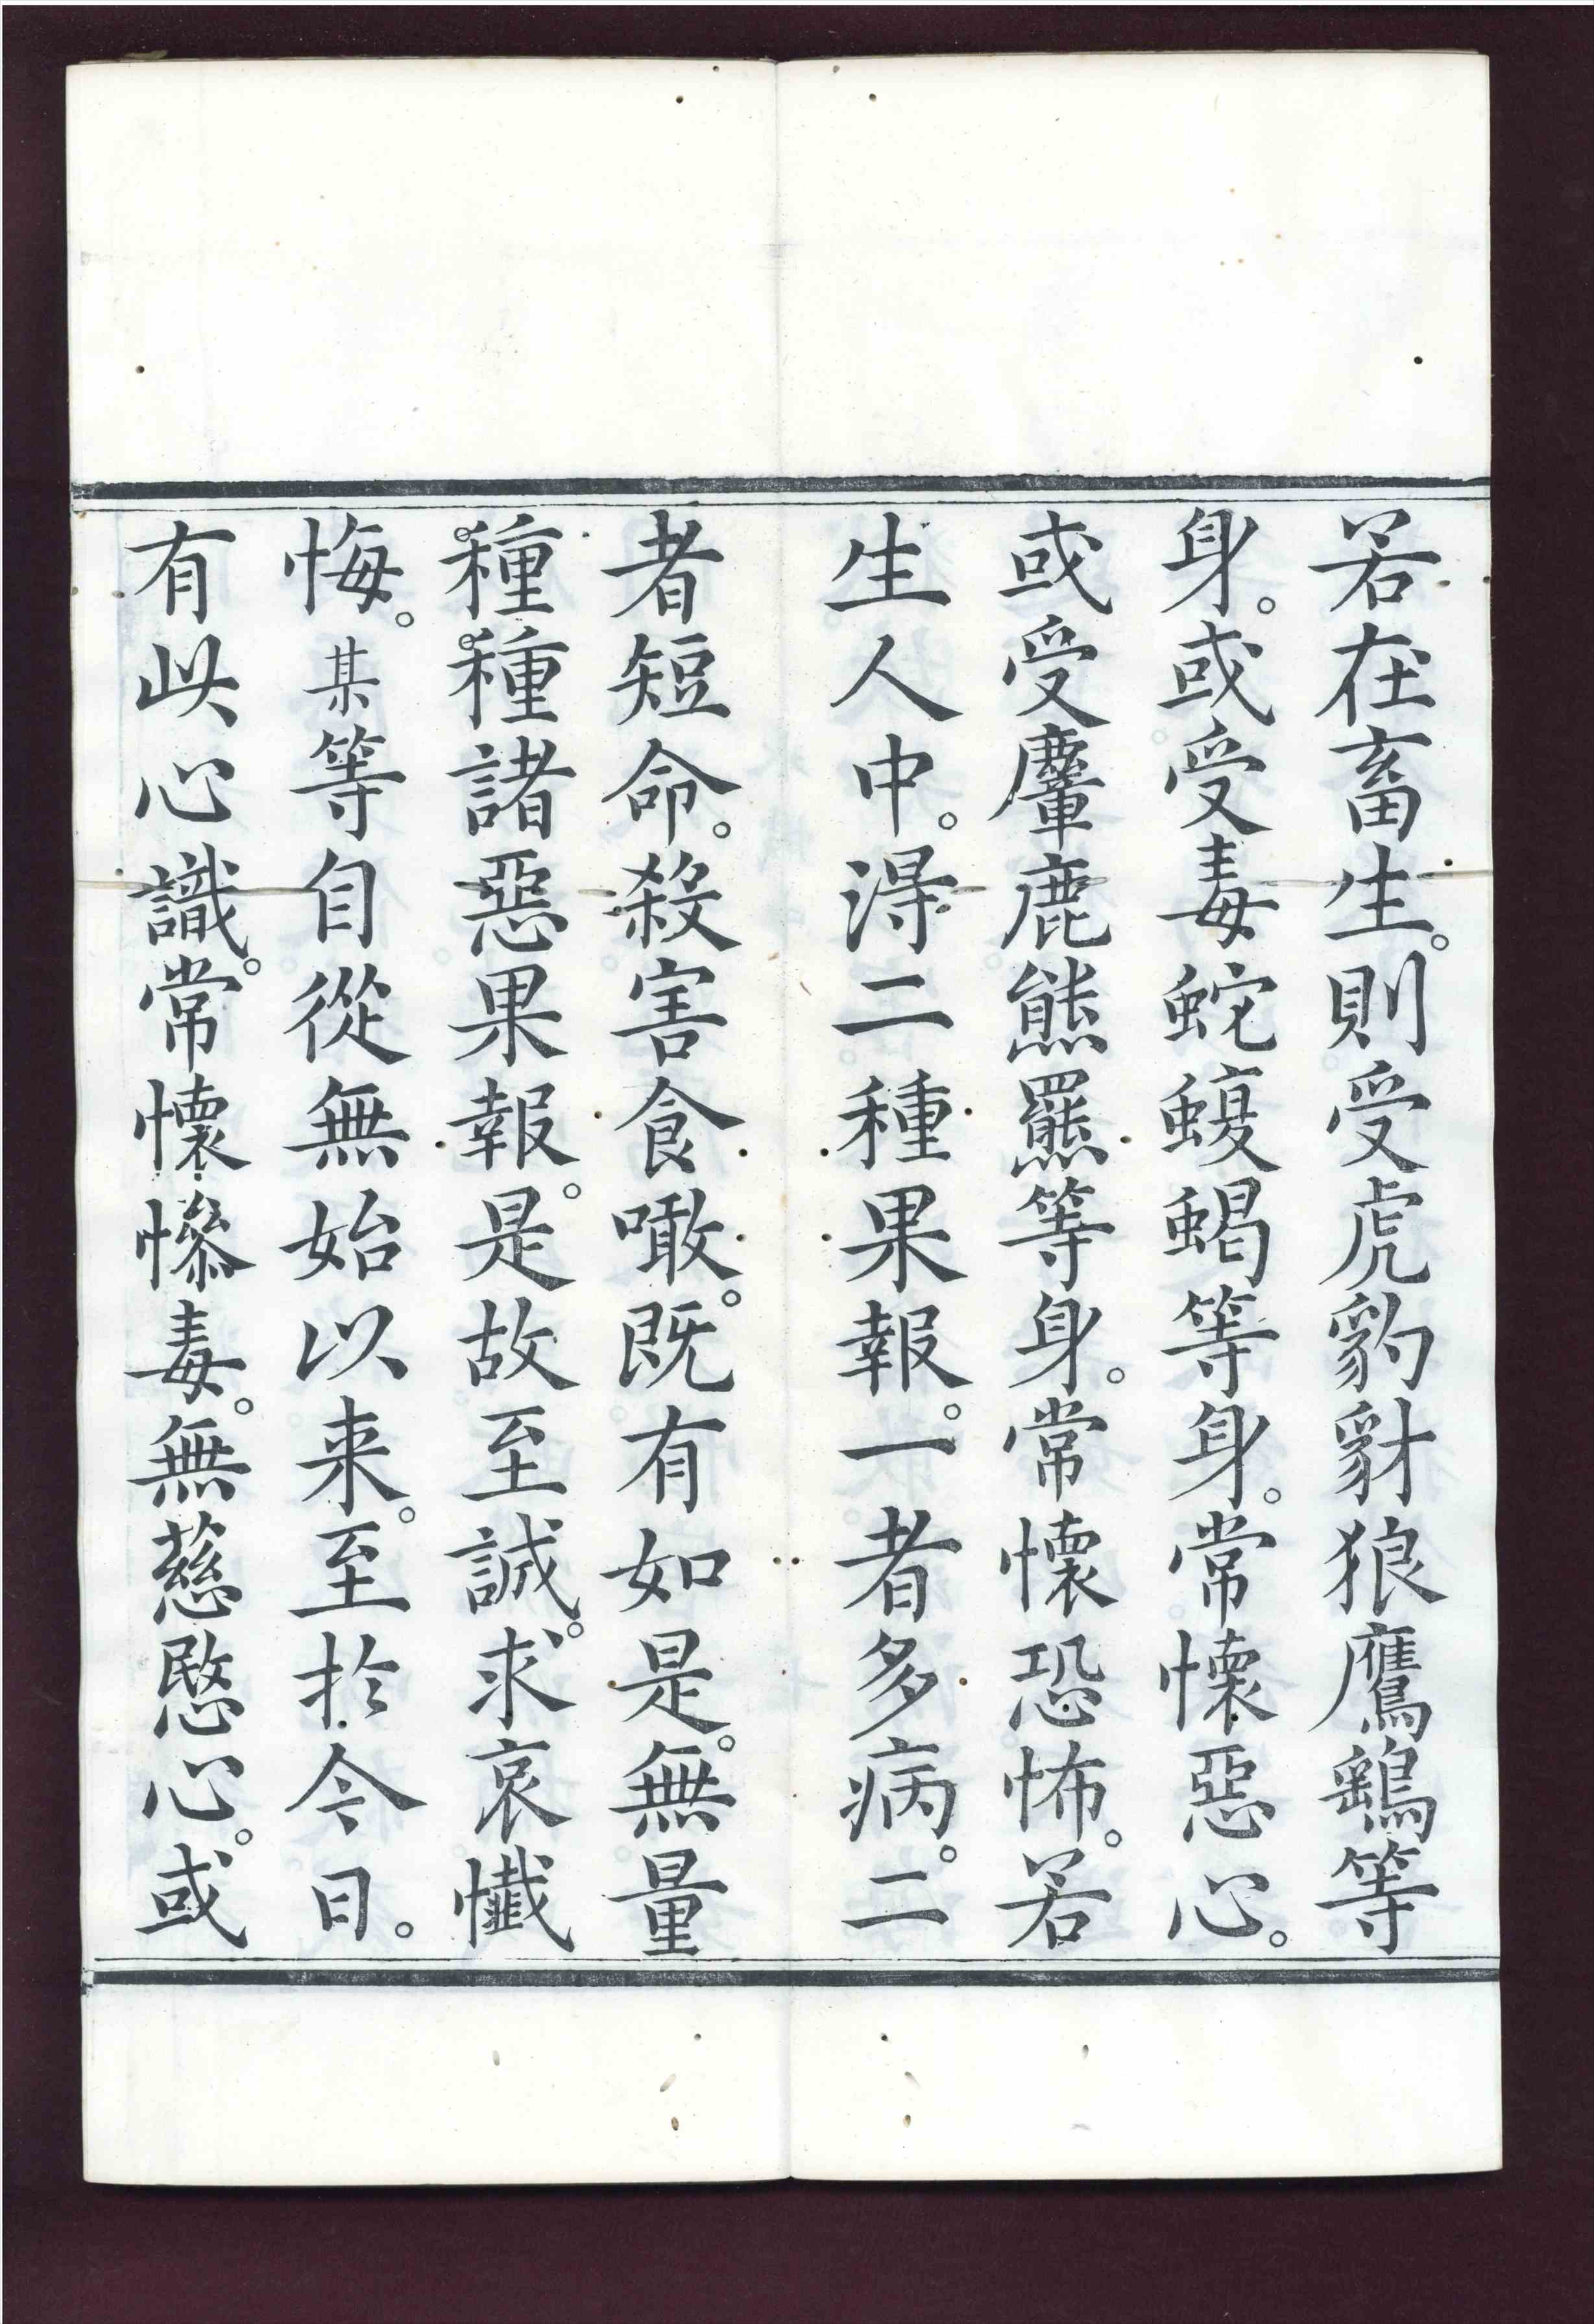 若在畜生。則受虎豹豺狼鷹鷂等
身。或受毒蛇蝮蝎等身。常懷惡心。
或受麞鹿熊羆等身。常懷恐怖。若
生人中。得二種果報。一者多病。二
者短命。殺害食噉。既有如是。無量
種種諸惡果報。是故至誠。求哀懺
悔。某等自從無始以来。至於今日。
有此心識。常懷慘毒。無慈愍心。或